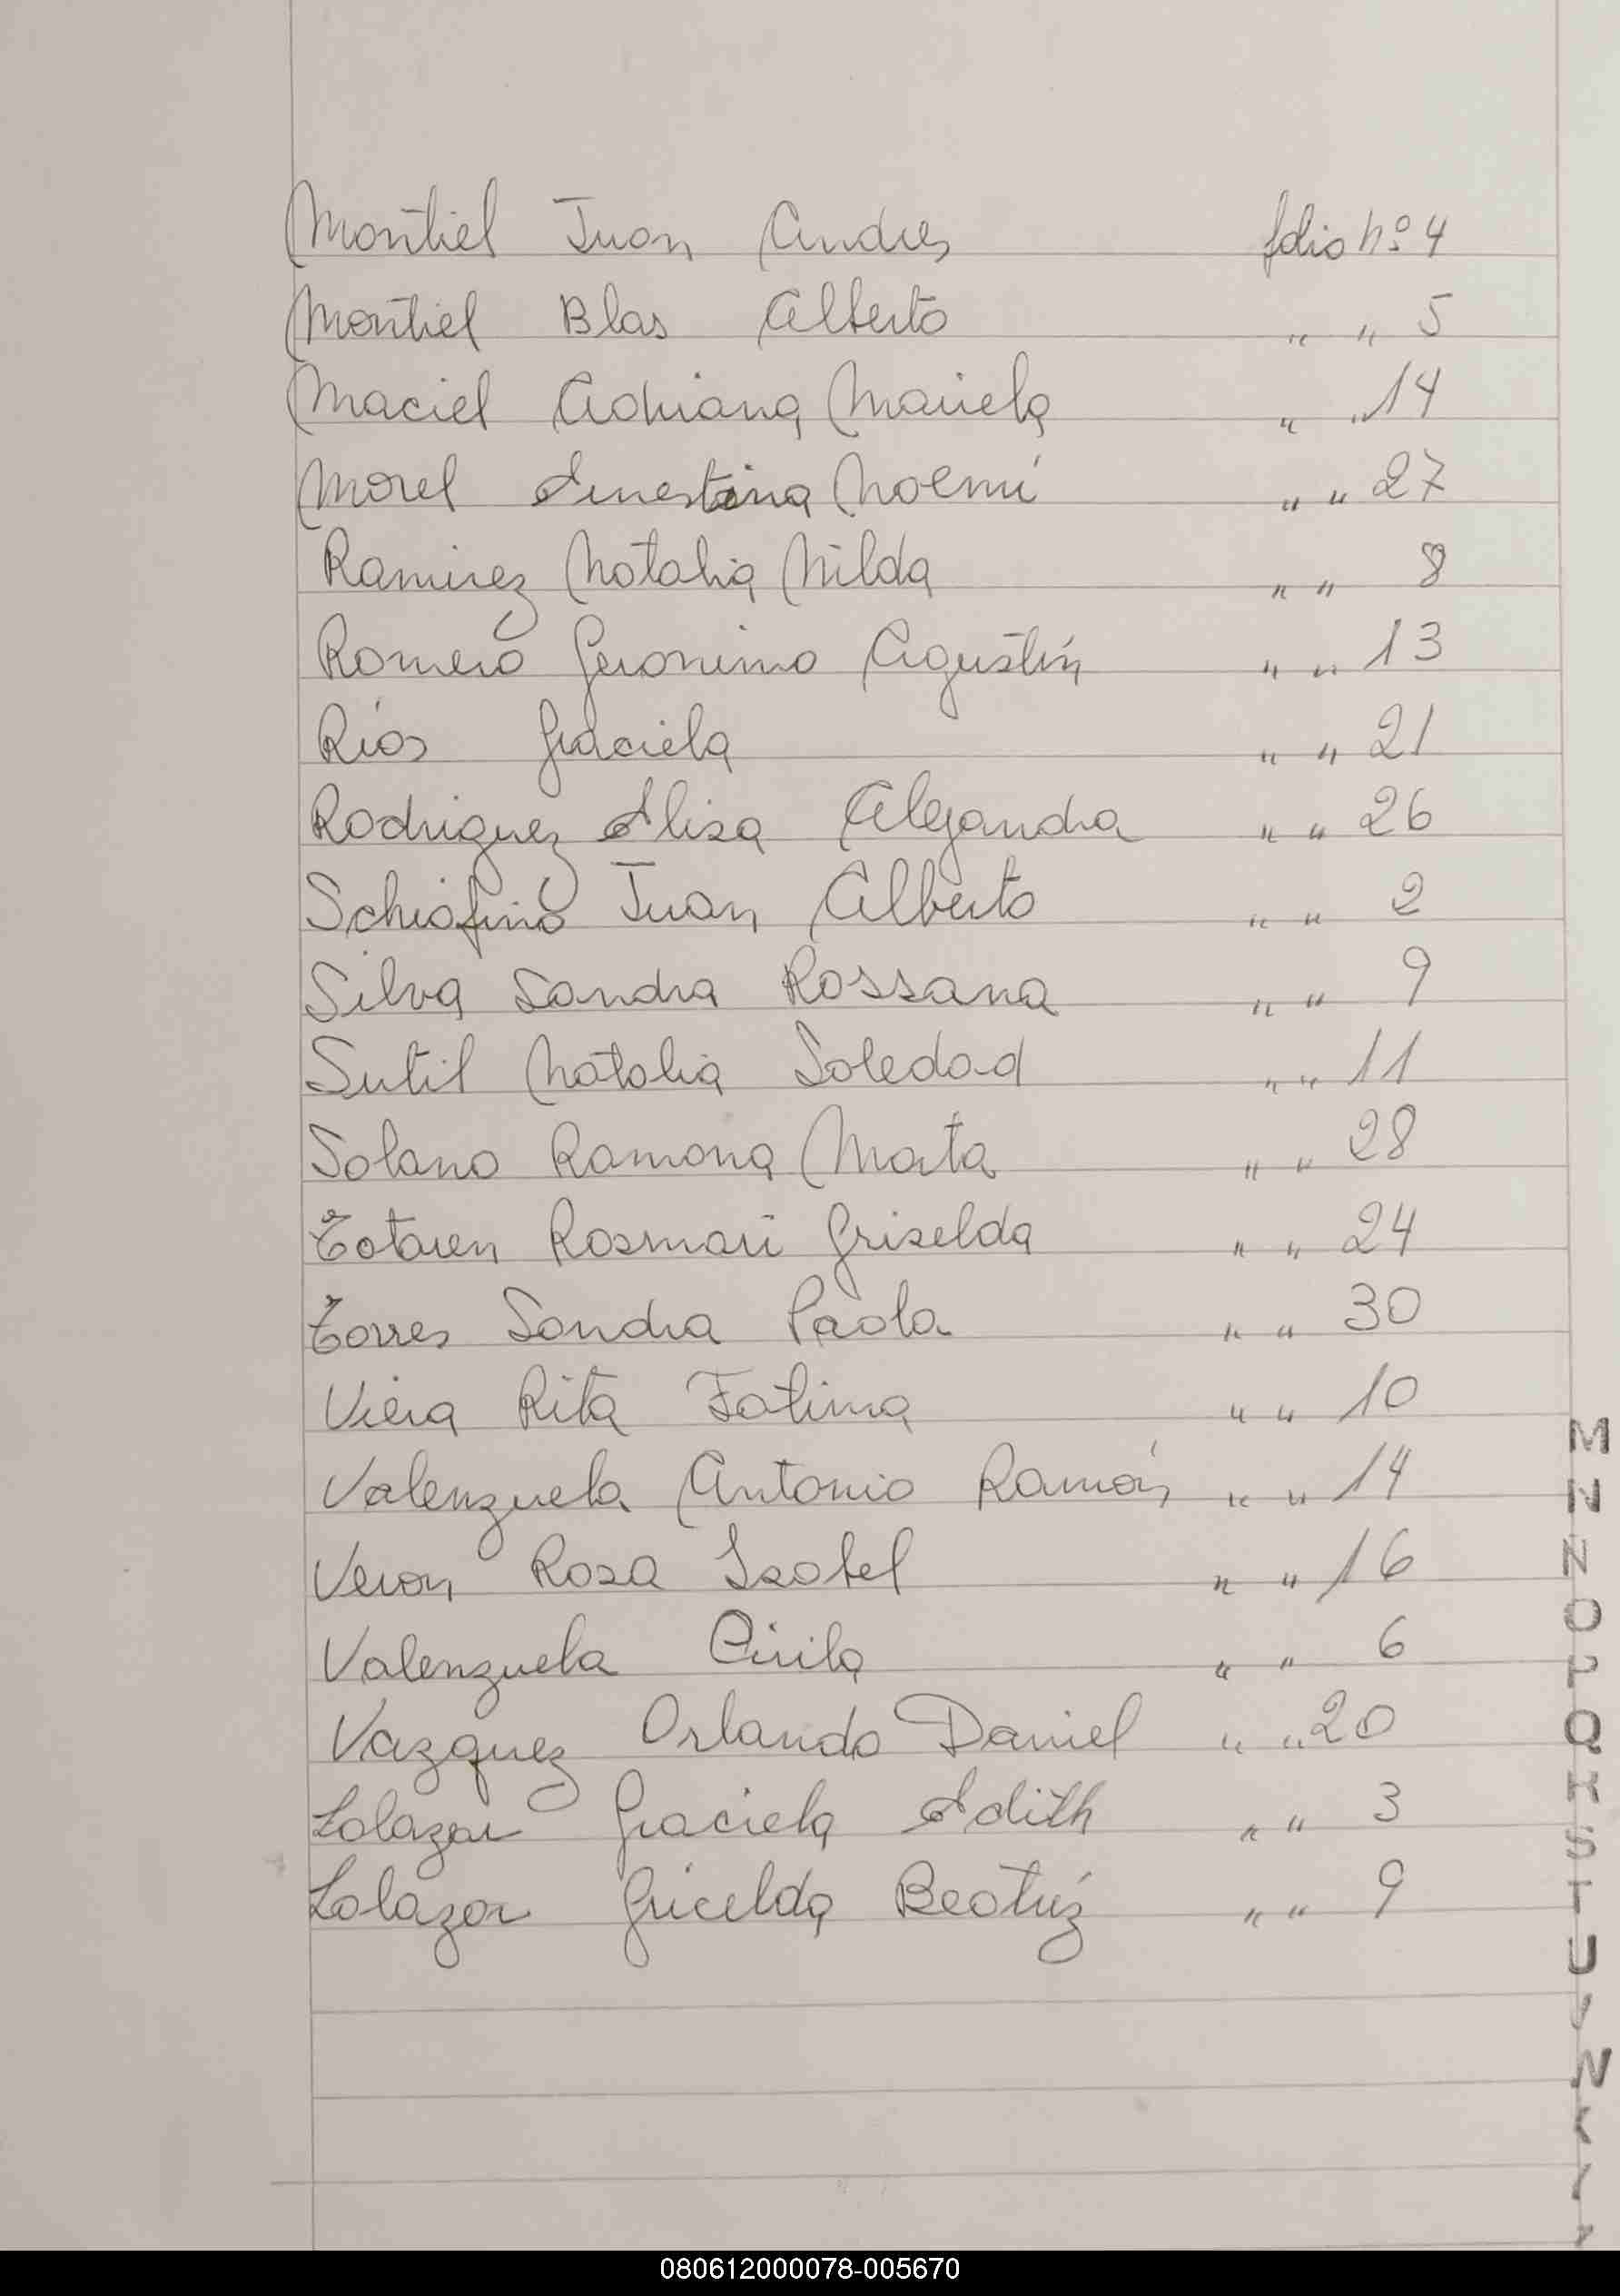 Montiel Juan Andres folio nº 4
Montiel Blas Alberto " " 5
Maciel Adriana Mariela " " 14
Morel Ernestina Noemí " " 27
Ramirez Natalia Nilda " " 8
Romero Geronimo Agustín " " 13
Ríos Graciela " " 21
Rodriguez Elisa Alejandra " " 26
Schiafino Juan Alberto " " 2
Silva Sandra Rossana " " 9
Sutil Natalia Soledad " " 11
Solano Ramona Marta " " 28
Totaren Rosmari Griselda " " 24
Torres Sandra Paola " " 30
Viera Rita Fatima " " 10
Valenzuela Antonio Ramón " " 14
Veron Rosa Isabel " " 16
Valenzuela Cirila " " 6
Vazquez Orlando Daniel " " 20
Zalazar Graciela Edith " " 3
Zalazar Gricelda Beatríz " " 9
080612000078-005670